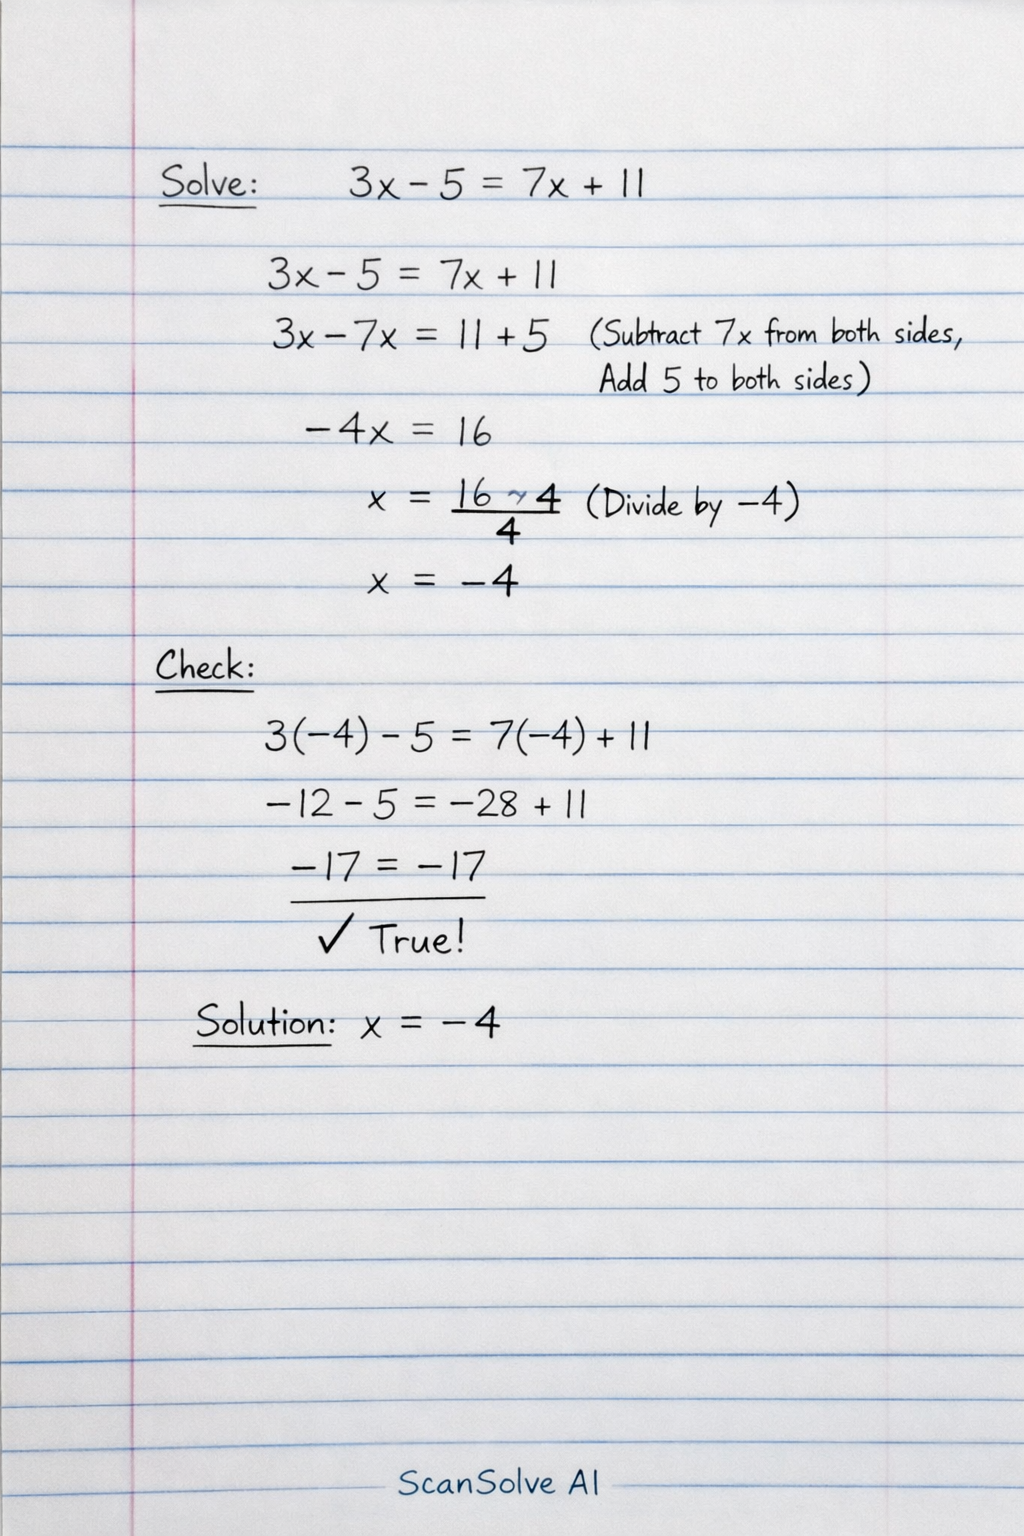 Solve: 3x - 5 = 7x + 11
3x - 5 = 7x + 11
3x - 7x = 11 + 5 (Subtract 7x from both sides,
Add 5 to both sides)
-4x = 16
x = 16 4 (Divide by -4)
4
x = -4
Check:
3(-4) - 5 = 7(-4) + 11
-12 - 5 = -28 + 11
-17 = -17
✓ True!
Solution: x = -4
ScanSolve AI